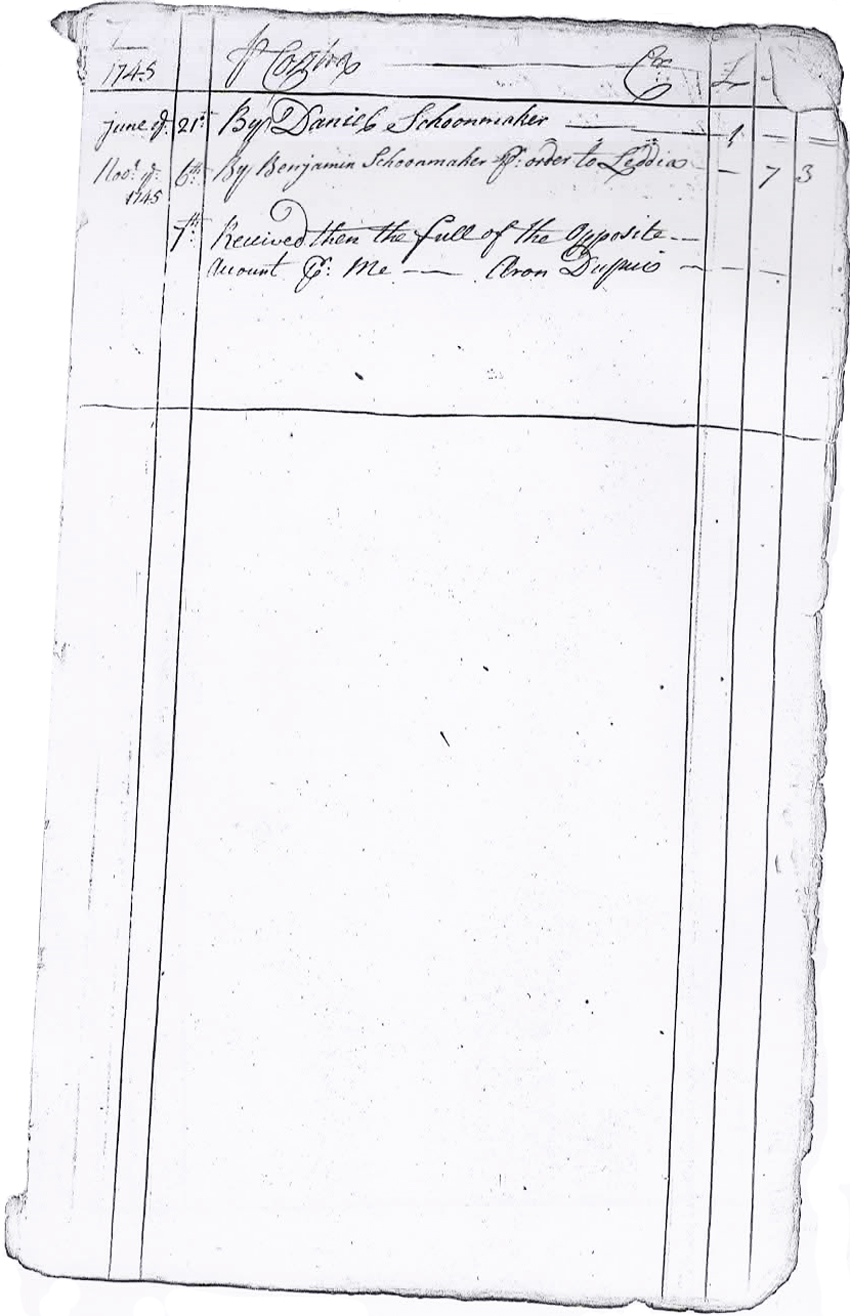 1745 ₽ Contra Cr £
june ye 21st By Daniel Schoonmaker 1
Novr ye 6th By Benjamin Schoonmaker ₽r order to Leddia 7 3
1745
7th Received then the full of the Opposite
Amount ₽r Me Aron Dupuis